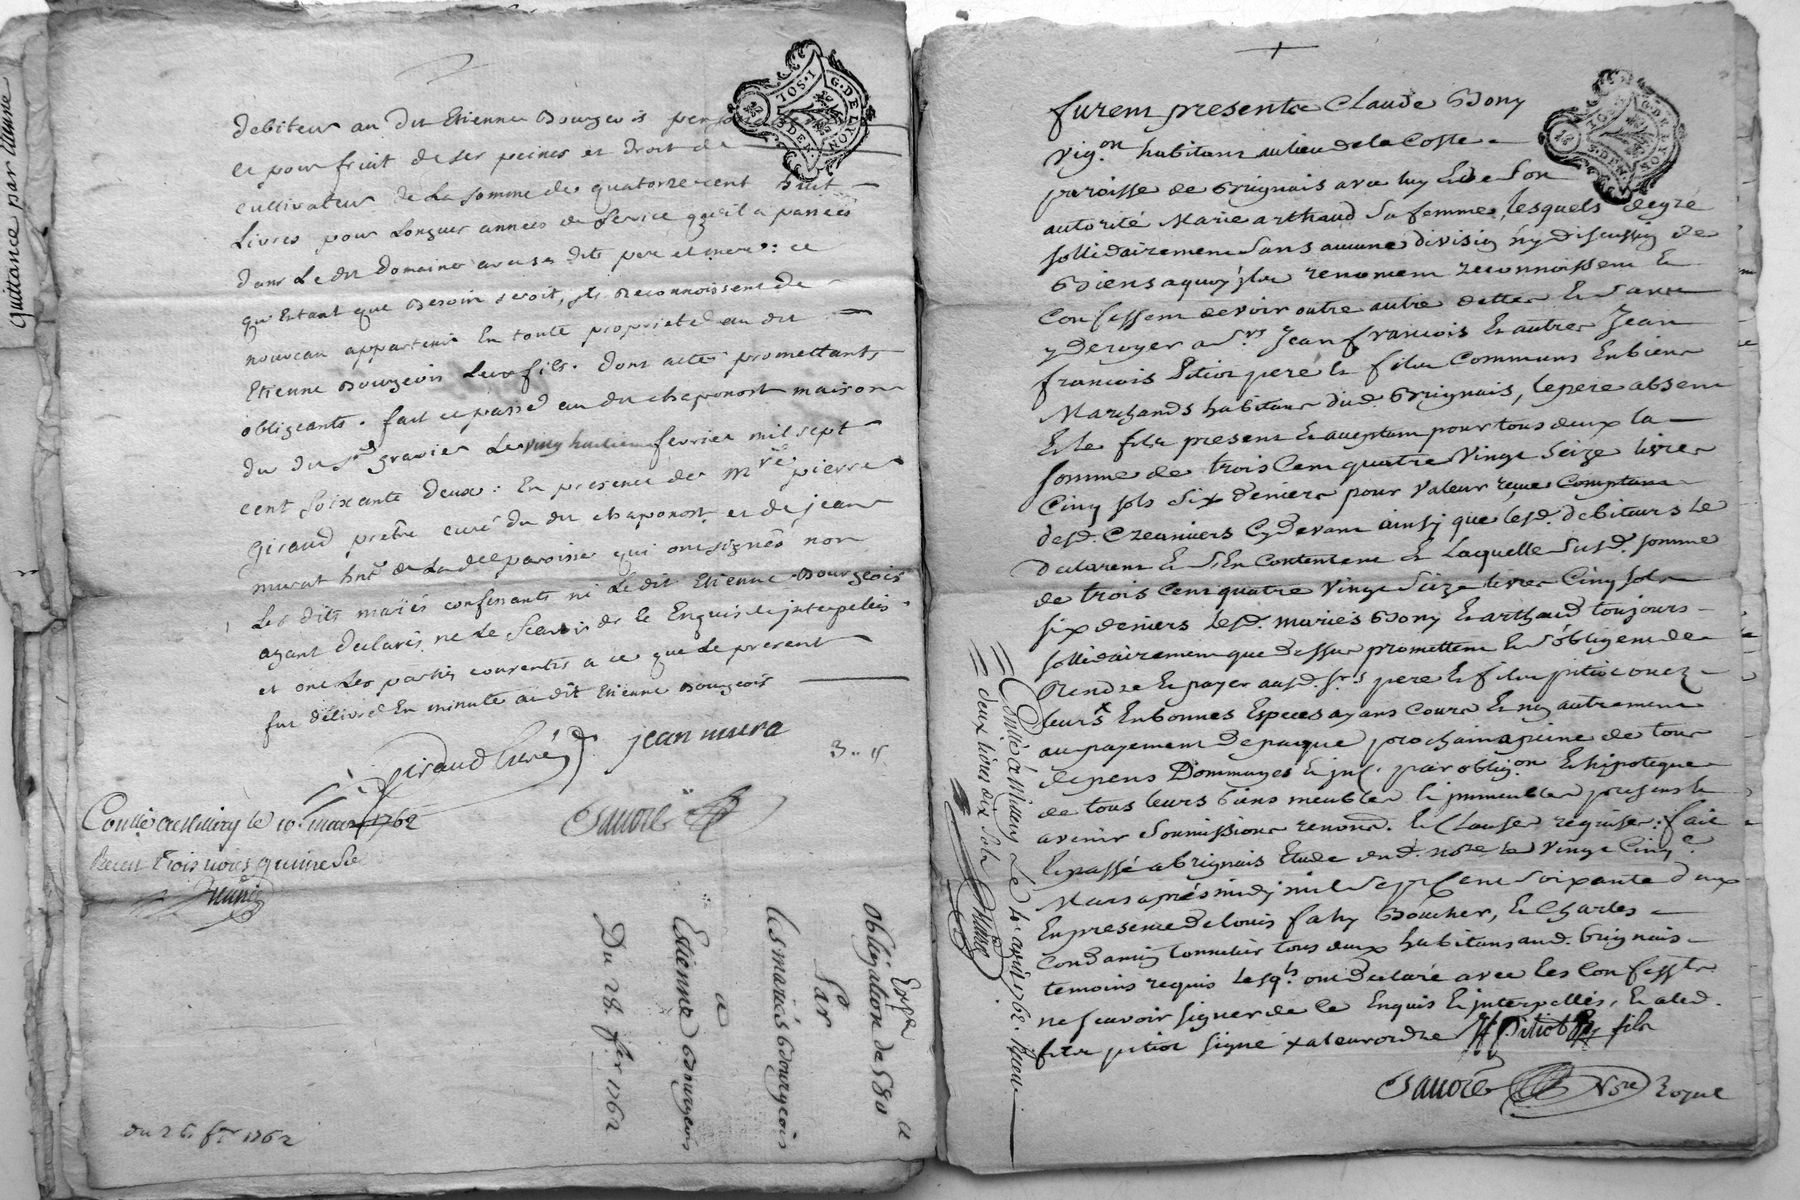 quittance par
debiteur au dit Etienne Bourgeois
et pour fruit de ses peines et droit de
cultivateur de La somme de quatorze cent huit
Livres pour Longues années de service qu'il a passées
dans Le dit Domaine avec ses dits pere et mere : ce
qu'Estant que Besoin seroit, ils Reconnoissent de
nouveau appartenir En toute proprieté au dit
Etienne Bourgeois Leur fils. dont acte promettants
obligeants. fait et passé au dit chaponost maison
du dit Sr gravier Le vingt huitieme fevrier mil sept
cent soixante deux : En presence de Mre pierre
Giraud prêtre curé du dit chaponost et de jean
murat hnt de La dte paroisse qui ont signés non
Les dits mariés confessants ni Le dit Etienne Bourgeois
ayant declarés ne Le scavoir de ce Enquis et interpellés
et ont Les parties consenties a ce que Le present
fut délivré En minute au dit Etienne Bourgeois
Giraud curé
jean mura
3..
Savoie
Conllé a Millery le 10e mars 1762
Receu trois livres quinze sols
Expn
obligation de 580
Par
les mariés Bourgeois
a
Estienne Bourgeois
Du 28. fer 1762
du 26 fer 1762
G. DE LYON
3. DEN.
furent presents Claude Bony
vigon habitant au lieu de la Coste
paroisse de Brignais avec luy Et de Son
autorité Marie arthaud sa femme, lesquels de gré
sollidairement sans aucune division ny discussion de
Biens a quoy ils renoncent reconnoissent Et
Confessent devoir outre autre dette Et sans
y deroyer a Srs Jean francois Et autre Jean
francois Pitiot pere Et fils Communs En biens
Marchands habitans dud. Brignais, le pere absent
Et le fils present Et acceptant pour tous deux la
somme de trois Cent quatre Vingt Seize livres
Cinq sols Six deniers pour valeur reçue Comptant
desd. Creanciers Cy devant ainsy que lesd. debiteurs le
declarent Et s'En Contentent Et Laquelle susd. somme
de trois Cent quatre Vingt Seize livres Cinq sols
six deniers lesd. mariés Bony Et arthaud toujours
sollidairement que dessus promettent Et s'obligent de
Rendre Et payer ausd. Srs pere Et fils pitiot ou ez
leurs x En bonnes Especes ayans Cours Et non autrement
au payement de paque prochain a peine de tous
depens Dommages Et int. par obligon Et hipoteque
de tous leurs biens meubles Et immeubles presens Et
avenir soumissions renond. Et Clauses requises : fait
Et passé a Brignais Etude dud. nore Le Vingt Cinqe
Mars après midy mil Sept Cent Soixante deux
En presence de Louis fahy Boucher, Et Charles
Condamin tonnelier tous deux habitans aud. Brignais
temoins requis lesqls ont declaré avec les Confessts
ne scavoir signer de ce Enquis Et interpellés, Et a led.
fils pitiot signé x a leur ordre Pitiot fils
Savoie Nore Royal
Conllé a Millery Le 1er avril 1762. Receu
deux livres dix sols